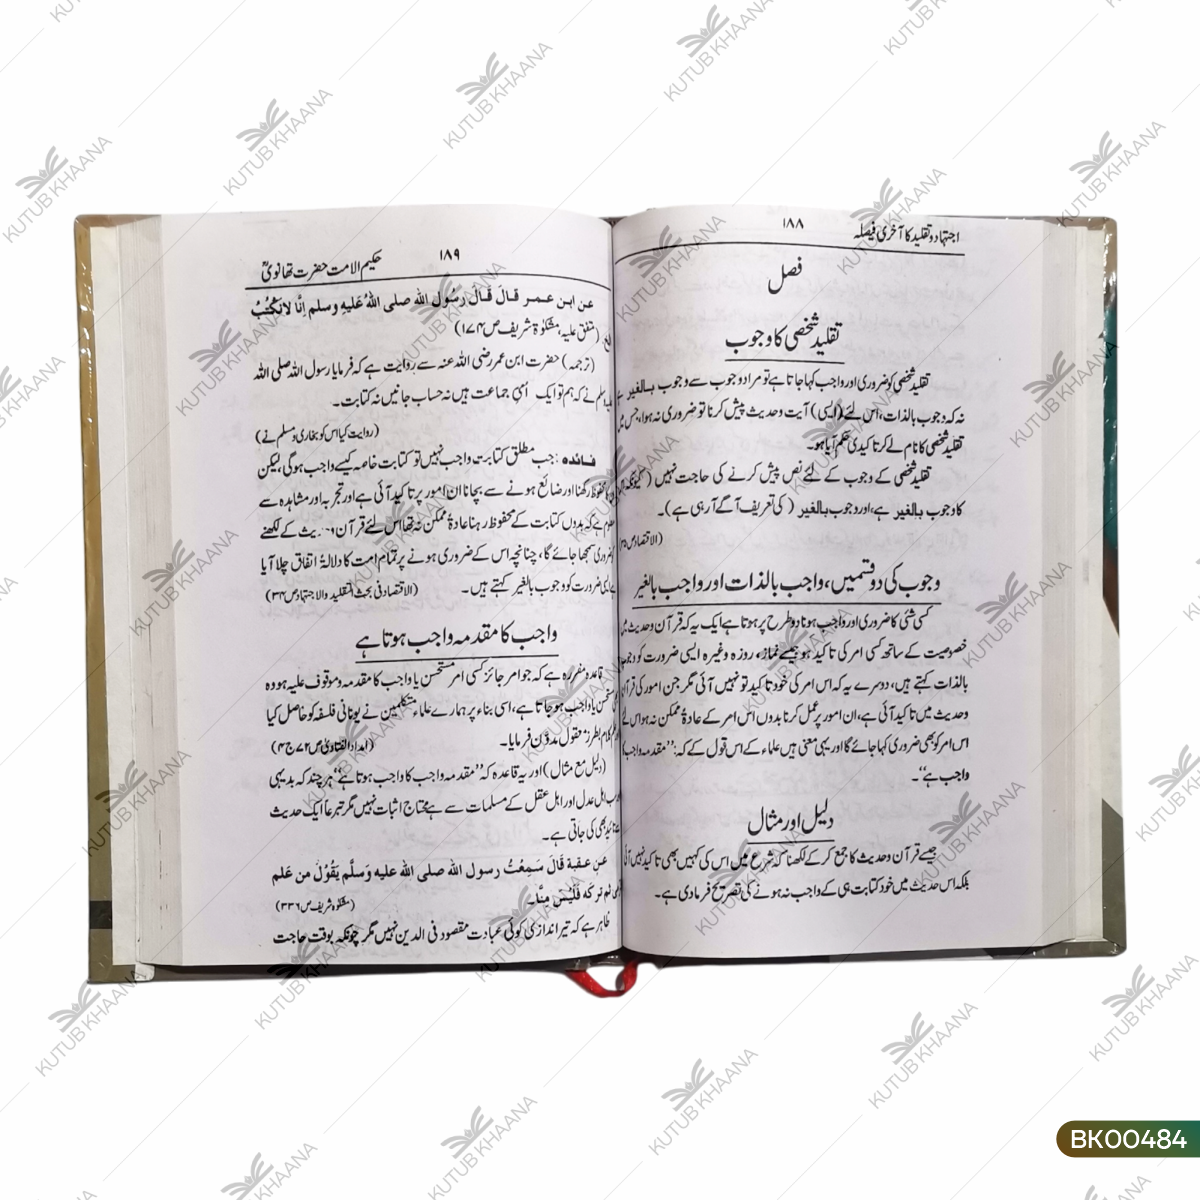 اجتہاد و تقلید کا آخری فیصلہ
۱۸۸
فصل
تقلید شخصی کا وجوب
تقلید شخصی کو ضروری اور واجب کہا جاتا ہے تو مراد وجوب سے وجوب بالغیر ہے
نہ کہ وجوب بالذات، اس لئے (ایسی) آیت وحدیث پیش کرنا تو ضروری نہ ہوا، جس میں
تقلید شخصی کا نام لے کر تاکیدی حکم آیا ہو۔
تقلید شخصی کے وجوب کے لئے نص پیش کرنے کی حاجت نہیں (کیونکہ
کا وجوب بالغیر ہے، اور وجوب بالغیر (کی تعریف آگے آرہی ہے)۔
(الاقتصاد ص
وجوب کی دو قسمیں، واجب بالذات اور واجب بالغیر
کسی شئی کا ضروری اور واجب ہونا دو طرح پر ہوتا ہے ایک یہ کہ قرآن وحدیث میں
خصوصیت کے ساتھ کسی امر کی تاکید ہو جیسے نماز، روزہ وغیرہ ایسی ضرورت کو وجوب
بالذات کہتے ہیں، دوسرے یہ کہ اس امر کی خود تاکید تو نہیں آئی مگر جن امور کی قرآن
وحدیث میں تاکید آئی ہے، ان امور پر عمل کرنا بدوں اس امر کے عادۃً ممکن نہ ہو اس لئے
اس امر کو بھی ضروری کہا جائے گا اور یہی معنی ہیں علماء کے اس قول کے کہ: ”مقدمہ واجب
واجب ہے“۔
دلیل اور مثال
جیسے قرآن وحدیث کا جمع کر کے لکھنا کہ شرع میں اس کی کہیں بھی تاکید نہیں آئی
بلکہ اس حدیث میں خود کتابت ہی کے واجب نہ ہونے کی تصریح فرمادی ہے۔
۱۸۹
حکیم الامت حضرت تھانویؒ
عن ابن عمر قال قال رسُول الله صلى اللهُ عَليهِ وسلم اِنَّا لانَكْتُبُ
(متفق علیہ، مشکوٰۃ شریف ص ۱۷۴)
(ترجمہ) حضرت ابن عمر رضی اللہ عنہ سے روایت ہے کہ فرمایا رسول اللہ صلی اللہ
وسلم نے کہ ہم تو ایک اُمّی جماعت ہیں نہ حساب جانیں نہ کتابت۔
(روایت کیا اس کو بخاری و مسلم نے)
فائدہ: جب مطلق کتابت واجب نہیں تو کتابت خاصہ کیسے واجب ہوگی، لیکن
محفوظ رکھنا اور ضائع ہونے سے بچانا ان امور پر تاکید آئی ہے اور تجربہ اور مشاہدہ سے
معلوم ہے کہ بدوں کتابت کے محفوظ رہنا عادۃً ممکن نہ تھا اس لئے قرآن وحدیث کے لکھنے
ضروری سمجھا جائے گا، چنانچہ اس کے ضروری ہونے پر تمام امت کا دلالۃً اتفاق چلا آیا
کی ضرورت کو وجوب بالغیر کہتے ہیں۔ (الاقتصاد فی بحث التقلید والاجتہاد ص ۳۴)
واجب کا مقدمہ واجب ہوتا ہے
قاعدہ مقررہ ہے کہ جو امر جائز کسی امر مستحسن یا واجب کا مقدمہ و موقوف علیہ ہو وہ
مستحسن یا واجب ہو جاتا ہے، اسی بناء پر ہمارے علماء متکلمین نے یونانی فلسفہ کو حاصل کیا
کلام بطرز معقول مدوّن فرمایا۔ (امداد الفتاویٰ ص ۷۲ ج ۴)
(دلیل مع مثال) اور یہ قاعدہ کہ ”مقدمہ واجب کا واجب ہوتا ہے“ ہر چند کہ بدیہی
اہل عدل اور اہل عقل کے مسلمات سے ہے محتاج اثبات نہیں مگر تبرعاً ایک حدیث
بھی کی جاتی ہے۔
عَن عقبة قالَ سَمِعْتُ رسول الله صلى الله عليه وَسلّم يَقُوْلُ من عَلِم
ثم تركَه فَلَيْسَ مِنَّا۔ (مشکوٰۃ شریف ص ۳۳۶)
ظاہر ہے کہ تیر اندازی کوئی عبادت مقصود فی الدین نہیں مگر چونکہ بوقت حاجت
KUTUB KHAANA
BK00484